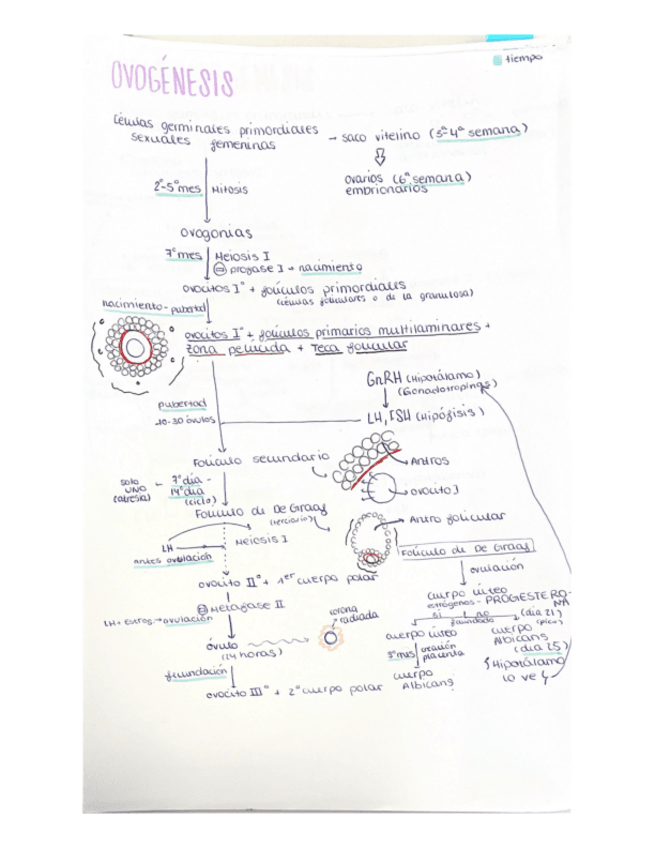 tiempo
OVOGÉNESIS
Células germinales primordiales
sexuales femeninas
→ saco vitelino (3ª-4ª semana)
ovarios (6ª semana)
embrionarios
2º-5º mes Mitosis
ovogonias
7º mes Meiosis I
⊖ profase I → nacimiento
ovocitos Iº + folículos primordiales
(células foliculares o de la granulosa)
nacimiento - pubertad
ovocitos Iº + folículos primarios multilaminares +
zona pelúcida + Teca folicular
GnRH (Hipotálamo)
(Gonadotropinas)
LH, FSH (Hipófisis)
pubertad
10-30 óvulos
Folículo secundario
Antros
ovocito I
solo UNO (atresia) ← 7º día - 14º día (ciclo)
Folículo de De Graaf
(terciario)
Antro folicular
LH
antes ovulación
Meiosis I
Folículo de De Graaf
ovulación
ovocito IIº + 1er cuerpo polar
cuerpo lúteo
estrógenos - PROGESTERONA
⊖ Metafase II
LH + Estróg. → ovulación
corona radiada
si no fecundado
(día 21)
(pico)
cuerpo lúteo
cuerpo Albicans
(día 25)
óvulo
(24 horas)
3º mes creación placenta
Hipotálamo
lo ve
cuerpo
Albicans
fecundación
ovocito IIIº + 2º cuerpo polar